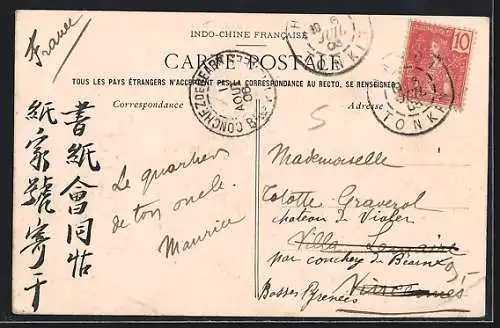 INDO-CHINE FRANÇAISE
CARTE POSTALE
TOUS LES PAYS ÉTRANGERS N'ACCEPTENT PAS LA CORRESPONDANCE AU RECTO, SE RENSEIGNER
Correspondance
Adresse
France
10
TONKIN
TONKIN
5
書紙會同帖
紙家號寄干
Le quartier
de ton oncle.
Maurice
Mademoiselle
Tototte Graverol
chateau de Viafer
Villa
par conchez de Béarn
Basses Pyrénées